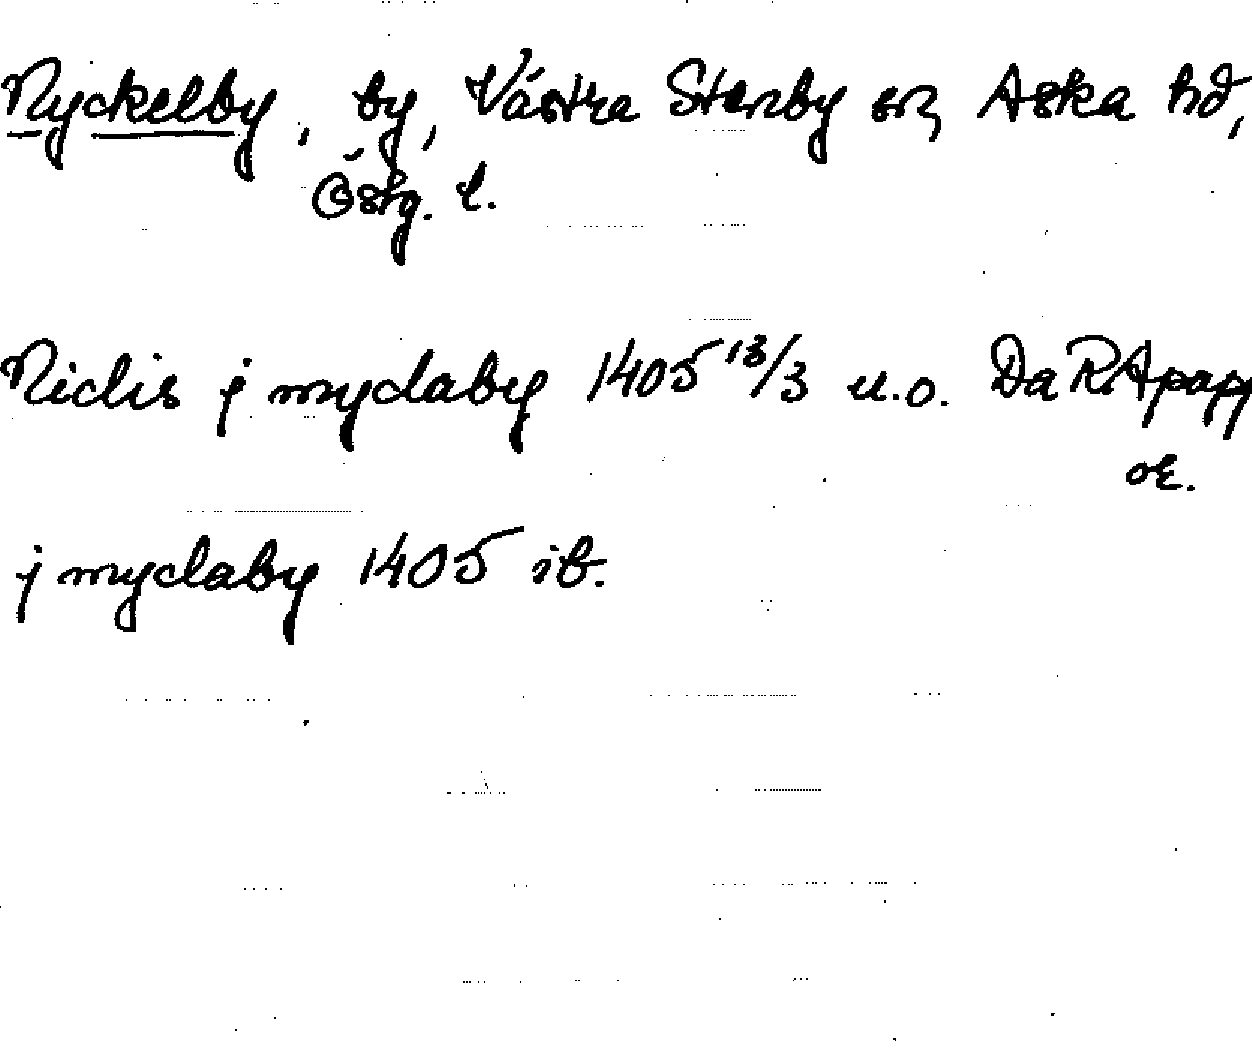 Nyckelby, by, Västra Stenby sn, Aska hd,
Östg. l.
Niclis j myclaby 1405 13/3 u.o. Da RApapp
or.
j myclaby 1405 ib.